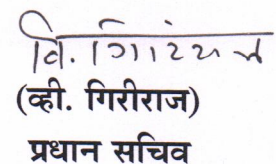 वि. गिरीराज
(व्ही. गिरीराज)
प्रधान सचिव